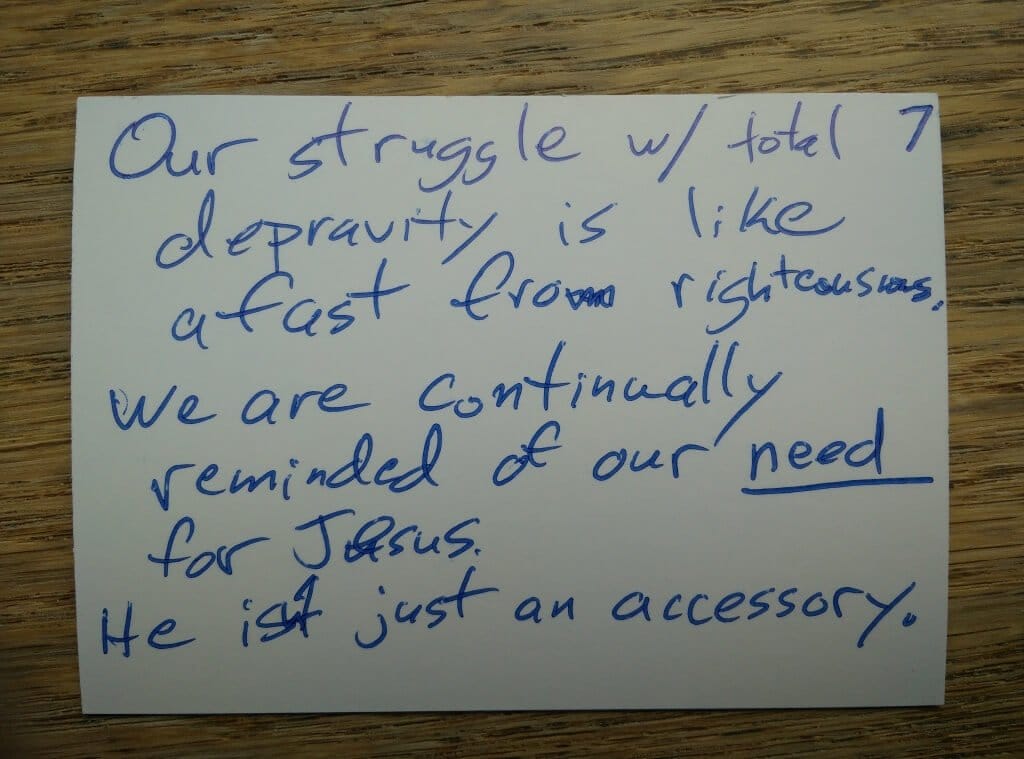 Our struggle w/ total 7
depravity is like
a fast from righteousness.
We are continually
reminded of our need
for Jesus.
He isn't just an accessory.